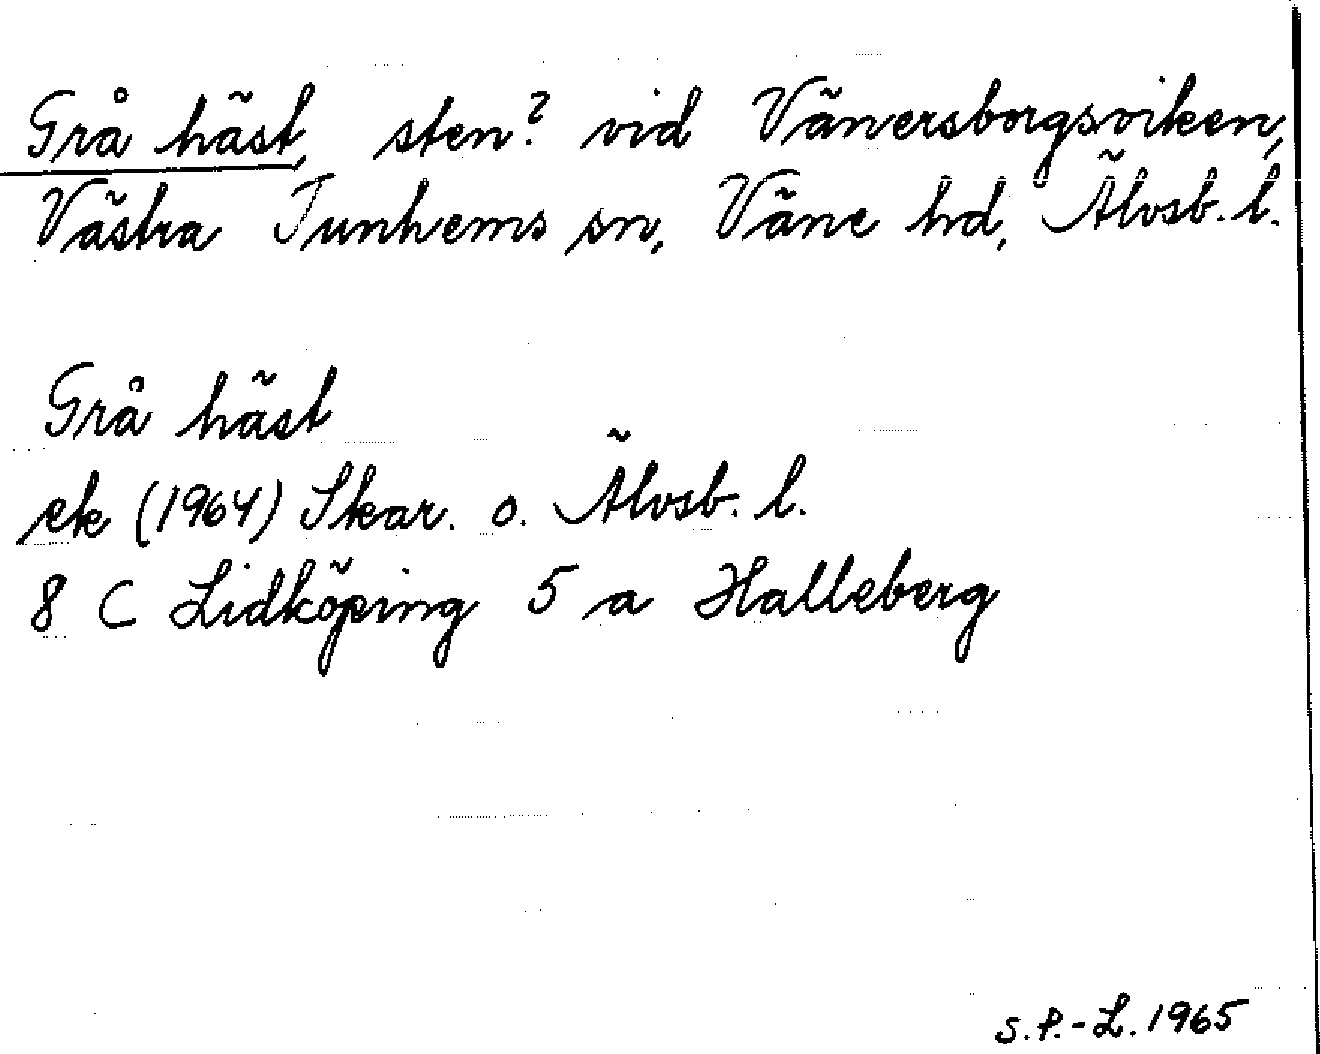 Grå häst, sten? vid Vänersborgsviken,
Västra Tunhems sn, Väne hd, Älvsb. l.
Grå häst
ek (1964) Skar. o. Älvsb. l.
8 C Lidköping 5 a Halleberg
S.P.-L. 1965